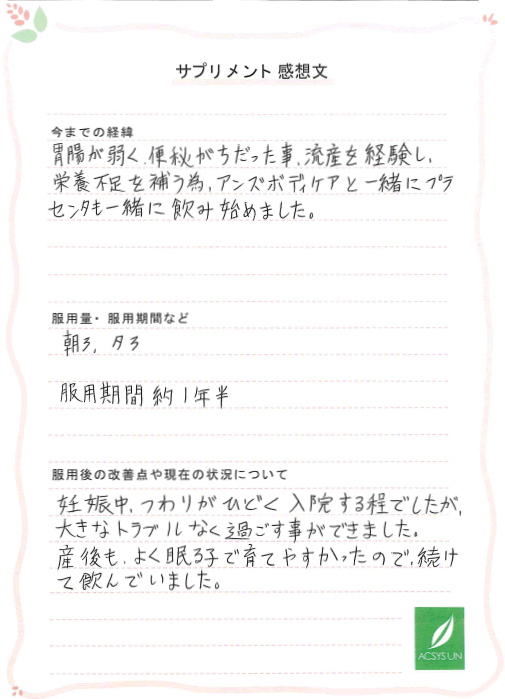 サプリメント 感想文
今までの経緯
胃腸が弱く、便秘がちだった事、流産を経験し、
栄養不足を補う為、アンズボディケアと一緒にプラ
センタも一緒に飲み始めました。
服用量・服用期間など
朝3, 夕3
服用期間 約1年半
服用後の改善点や現在の状況について
妊娠中、つわりがひどく入院する程でしたが、
大きなトラブルなく過ごす事ができました。
産後も、よく眠る子で育てやすかったので、続け
て飲んでいました。
ACSYSUN